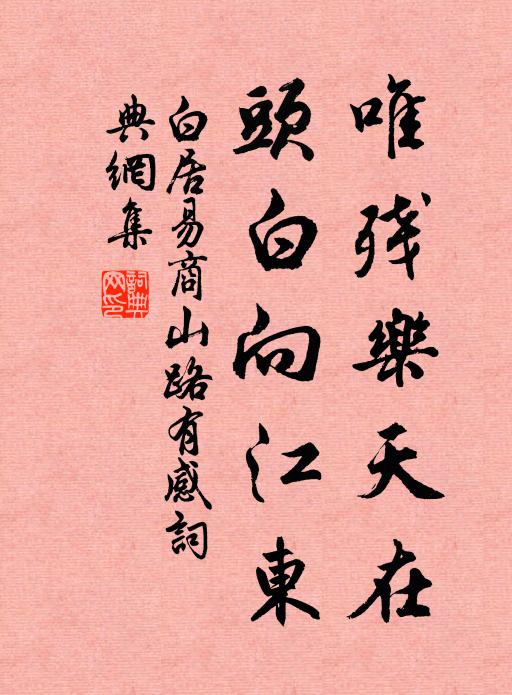 唯残樂天在
頭白向江東
白居易商山路有感詞
典網集
詞典網印